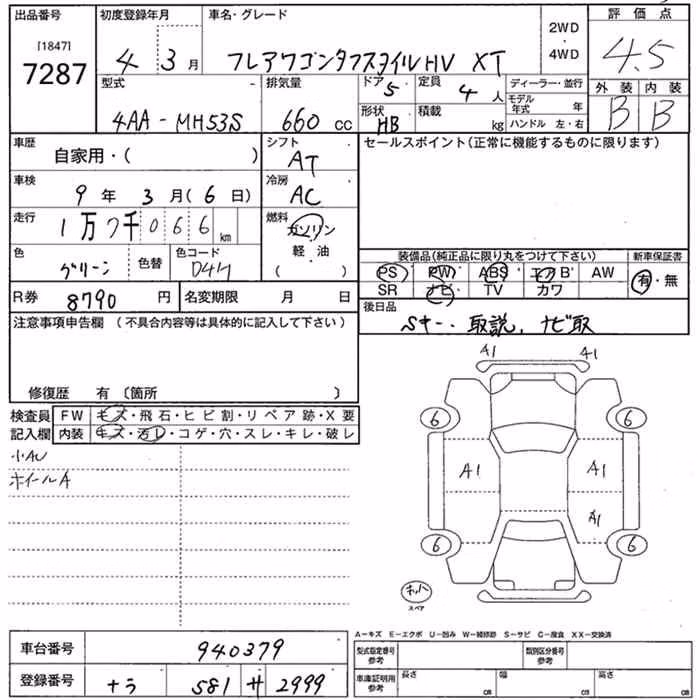 出品番号 初度登録年月 車名・グレード 評価点
[1847]
7287
4 3月 フレアワゴンタフスタイルHV XT 2WD 4WD 4.5
型式 排気量 ドア 定員 ディーラー・並行 外装 内装
4AA-MH53S 660 cc 5 4人 モデル年式 年 B B
形状 積載 ハンドル 左・右
HB kg
車歴 シフト セールスポイント(正常に機能するものに限ります)
自家用・( ) AT
車検 冷房
9年 3月(6日) AC
走行 燃料
1万7千066km ガソリン
軽・油
( )
色 色替 色コード
グリーン D4H
装備品(純正品に限り丸をつけて下さい) 新車保証書
PS PW ABS エアB AW 有・無
SR ナビ TV カワ
R券 8790円 名変期限 月 日
後日品
Sキー. 取説. ナビ取
注意事項申告欄 (不具合内容等は具体的に記入して下さい)
修復歴 有 〔箇所 〕
検査員 FW キズ・飛石・ヒビ割・リペア跡・X要
記入欄 内装 キズ・汚レ・コゲ・穴・スレ・キレ・破レ
小AU
ホイールA
A1 A1
6 6
A1 A1
A1
6 6
スペア
A-キズ E-エクボ U-凹み W-補修跡 S-サビ C-腐食 XX-交換済
車台番号 940379
型式指定番号 参考 類別区分番号 参考
登録番号 ナラ 581 サ 2999
車庫証明用 参考 長さ cm 幅 cm 高さ cm